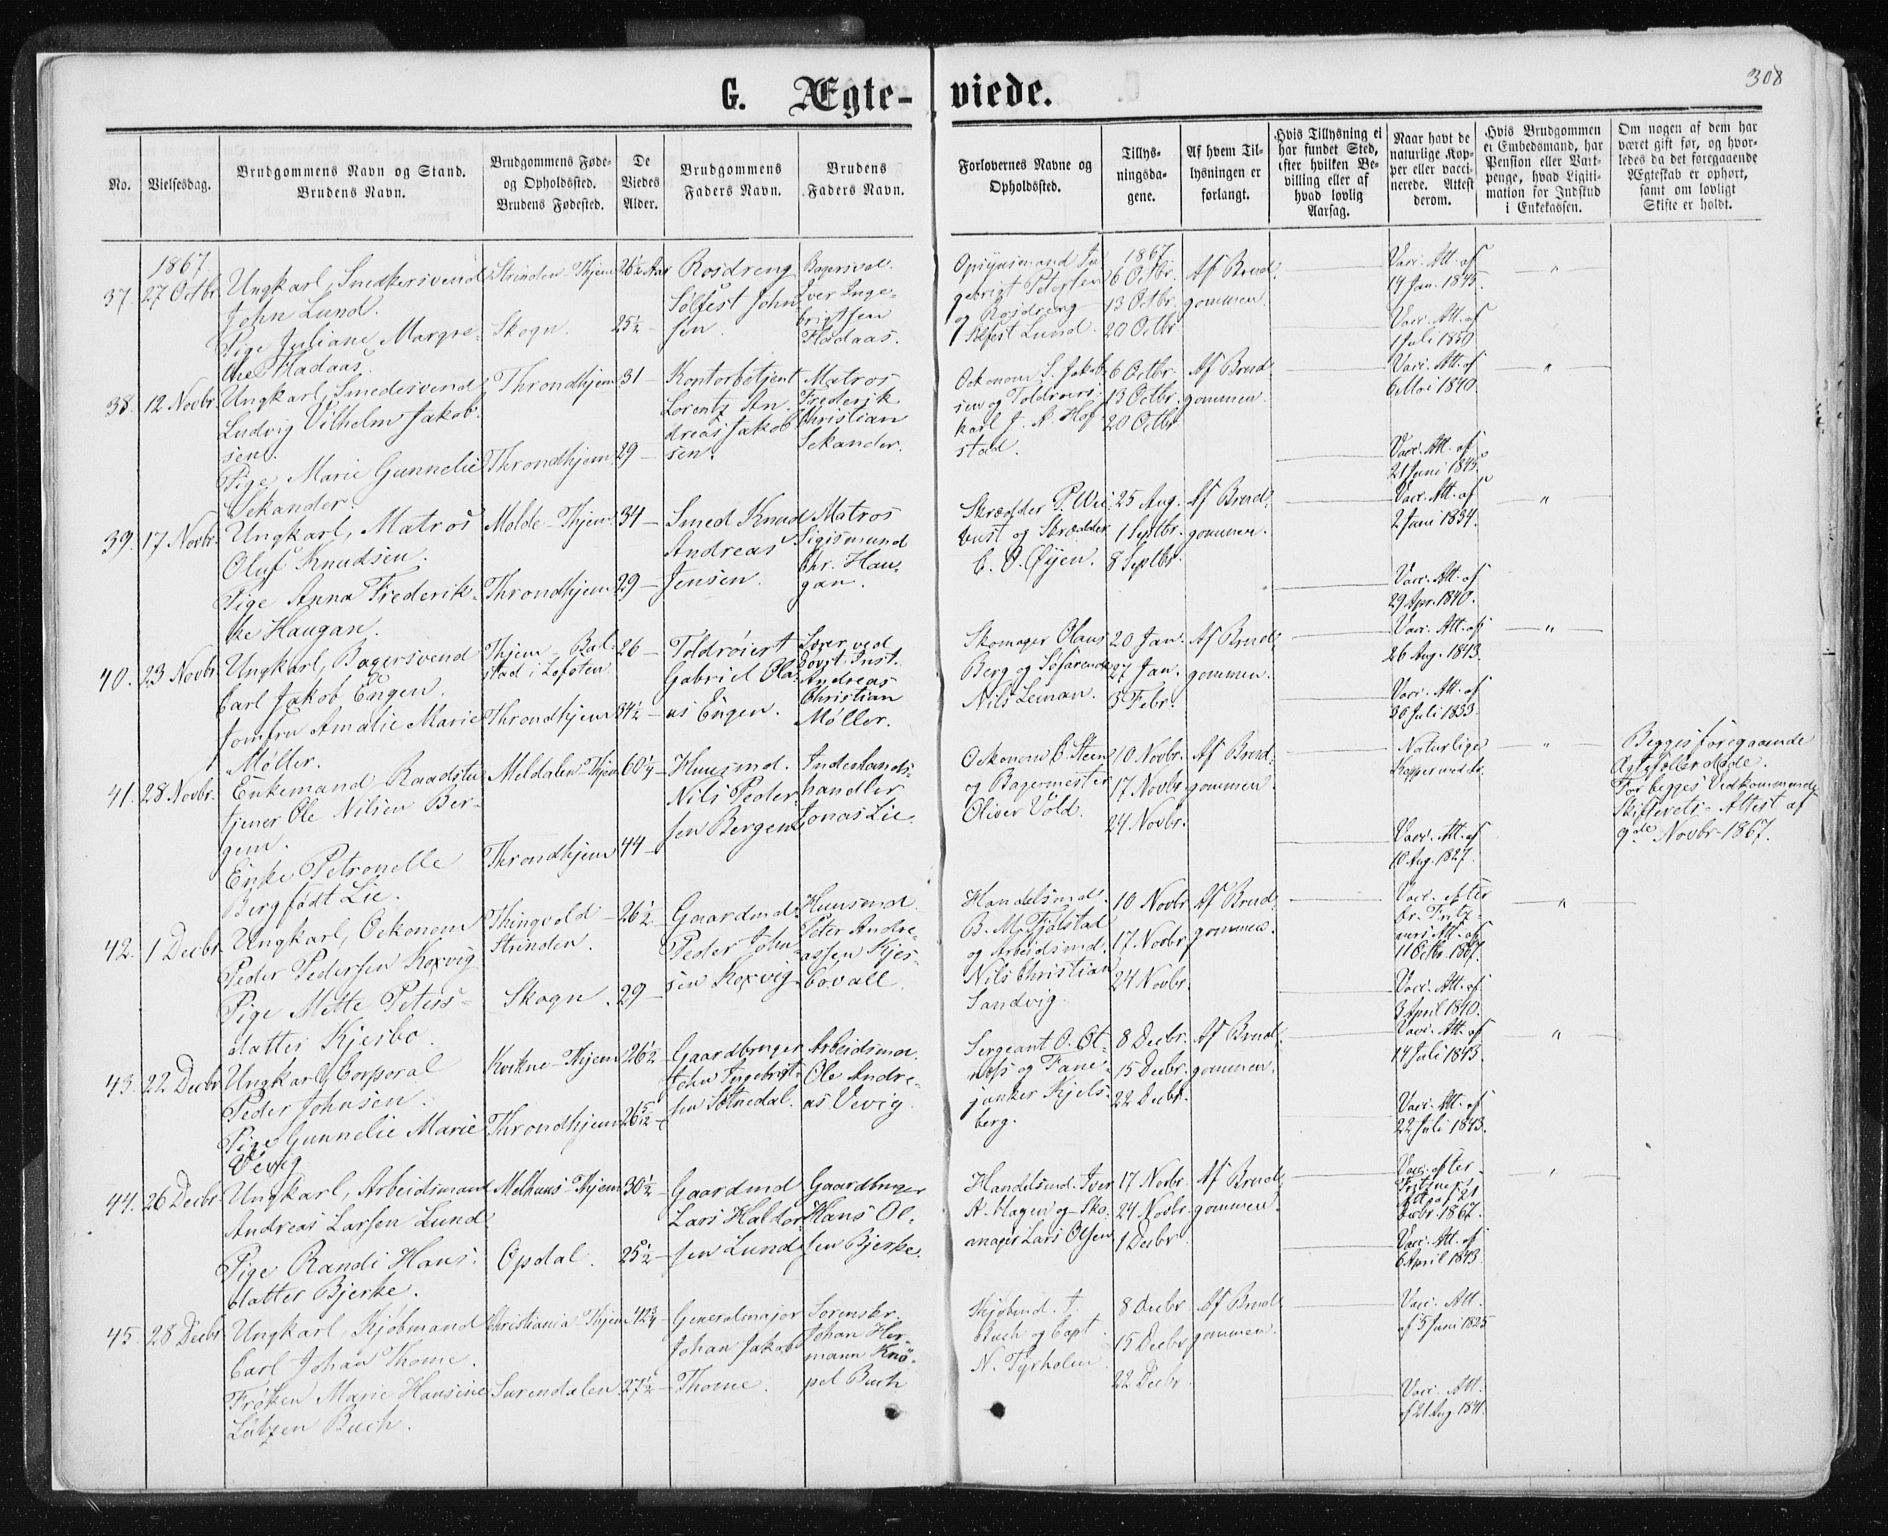 308
G. Ægte- viede.
No.
Vielsesdag.
Brudgommens Navn og Stand.
Brudens Navn.
Brudgommens Føde-
og Opholdssted.
Brudens Fødested.
De
Viedes
Alder.
Brudgommens
Faders Navn.
Brudens
Faders Navn.
Forlovernes Navne og
Opholdssted.
Tillys-
ningsda-
gene.
Af hvem Til-
lysningen er
forlangt.
Hvis Tillysning ei
har fundet Sted,
efter hvilken Be-
villing eller af
hvad lovlig
Aarsag.
Naar havt de
naturlige Kop-
per eller vacci-
nerede. Attest
derom.
Hvis Brudgommen
ei Embedsmand, har
Pension eller Vart-
penge, hvad Ligiti-
mation for Indskud
i Enkekassen.
Om nogen af dem har
været gift før, og hvor-
ledes da det foregaaende
Ægteskab er ophørt,
samt om lovligt
Skifte er holdt.
1867
37. 27 Octbr.
Ungkarl, Snedkersvend
John Lund.
Pige Juliane Margre-
the Hadaas.
Strinden - Thjem
Skogn.
26½ Aar
25½ -
Rosdreng
Solfest John-
sen.
Iver Inge-
brigtsen
Hadaas.
gebrigt Petersen
og Rosdreng
Solfest Lund.
1867
6 Octbr.
13 Octbr.
20 Octbr.
Af Brud-
gommen.
Vacc. Att. af
14 Jan. 1845.
Vacc. Att. af
1 Juli 1850.
38. 12 Novbr.
Ungkarl, Smedesvend
Ludvig Vilhelm Jakob-
sen.
Pige Marie Gunnelie
Sekander.
Throndhjem
Throndhjem
31 -
29 -
Kontorbetjent
Lorentz An-
dreas Jakob-
sen.
Matros
Frederik
Christian
Sekander.
Oekonom S. Jakob-
sen og Toldroers-
karl J. A. Hof-
stad.
6 Octbr.
13 Octbr.
20 Octbr.
Af Brud-
gommen.
Vacc. Att. af
6 Mai 1840.
Vacc. Att. af
21 Juni 1845.
39. 17 Novbr.
Ungkarl, Matros
Oluf Knudsen.
Pige Anna Frederik-
ke Haugan.
Molde - Thjem
Throndhjem
34 -
29 -
Smed Knud
Andreas
Jensen.
Matros
Sigismund
Chr. Hau-
gan.
Skrædder P. Wii-
bust og Skrædder
C. O. Øyen.
25 Aug.
1 Septbr.
8 Septbr.
Af Brud-
gommen.
Vacc. Att. af
2 Juni 1834.
Vacc. Att. af
29 Apr. 1840.
40. 23 Novbr.
Ungkarl, Bagersvend
Carl Jakob Engen.
Jomfru Amalie Marie
Møller.
Thjem - Bal-
stad i Lofoten
Throndhjem
26 -
34½ -
Toldrøiert
Gabriel Ola-
us Engen.
Lærer ved
Døvst. Inst.
Andreas
Christian
Møller.
Skomager Olaus
Berg og Søfarende
Nils Leman.
20 Jan.
27 Jan.
3 Febr.
Af Brud-
gommen.
Vacc. Att. af
26 Aug. 1843.
Vacc. Att. af
30 Juli 1833.
41. 28 Novbr.
Enkemand Raadstu-
tjener Ole Nilsen Ber-
gem.
Enke Petronelle
Berg født Lie.
Meldalen - Thjem
Throndhjem
60¼ -
44 -
Huusmd.
Nils Peder-
sen Bergem
Inderlands-
handler
Jonas Lie.
Oekonom B. Steen
og Bagermester
Oliver Vold.
10 Novbr.
17 Novbr.
24 Novbr.
Af Brud-
gommen.
Naturlige
Kopper
Vacc. Att. af
10 Aug. 1827.
Begges foregaaende
Ægtefæller døde.
For begges Vedkommende
Skifterets - Attest af
9de Novbr 1867.
42. 1 Decbr.
Ungkarl, Oekonom
Peder Pedersen Koxvig
Pige Mette Peters-
datter Kjesbo.
Thingvold -
Strinden.
Skogn.
26½ -
29 -
Gaardmd.
Peder John-
sen Koxvig
Huusmd.
Peter Andre-
assen Kjes-
bovall.
Handelsmd.
B. M. Fjolstad
og Arbeidsmd.
Nils Christian
Sandvig.
10 Novbr.
17 Novbr.
24 Novbr.
Af Brud-
gommen.
Vacc. efter
Dr. Fritz-
ners Att. af
11 Octbr. 1867.
Vacc. Att. af
3 April 1840.
43. 22 Decbr.
Ungkarl, Corporal
Peder Johnsen.
Pige Gunnelie Marie
Vevig
Kvikne - Thjem
Throndhjem
26½ -
26 5/12 -
Gaardbruger
John Ingebrigt-
sen Solnedal.
Arbeidsmd.
Ole Andre-
as Vevig.
Sergeant O. Ot-
nes og Fane-
junker Kjels-
berg.
8 Decbr.
15 Decbr.
22 Decbr.
Af Brud-
gommen.
Vacc. Att. af
14 Juli 1843.
Vacc. Att. af
22 Juli 1843.
44. 26 Decbr.
Ungkarl, Arbeidsmand
Andreas Larsen Lund
Pige Randi Hans-
datter Bjerke.
Melhuus - Thjem
Opdal.
30½ -
25½ -
Gaardmd
Lars Haldor-
sen Lund
Gaardbruger
Hans Ol-
sen Bjerke.
Handelsmd. Iver
A. Hagen og Sko-
mager Lars Olsen
17 Novbr.
24 Novbr.
1 Decbr.
Af Brud-
gommen.
Vacc. efter
Fritzners
Att. af 21
Decbr. 1867.
Vacc. Att. af
6 April 1843.
45. 28 Decbr.
Ungkarl, Kjøbmand
Carl Johan Thome.
Frøken Marie Hansine
Lutzen Buch.
Christiania - Thjem
Surendalen
42¾ -
27½ -
Generalmajor
Johan Jakob
Thome.
Sorenskr.
Johan Her-
mann Knø-
pel Buch
Kjøbmd. J.
Buch og Capt.
N. Tyrholm
8 Decbr.
15 Decbr.
22 Decbr.
Af Brud-
gommen.
Vacc. Att.
af 5 Juni 1825
Vacc. Att.
af 21 Aug. 1841.